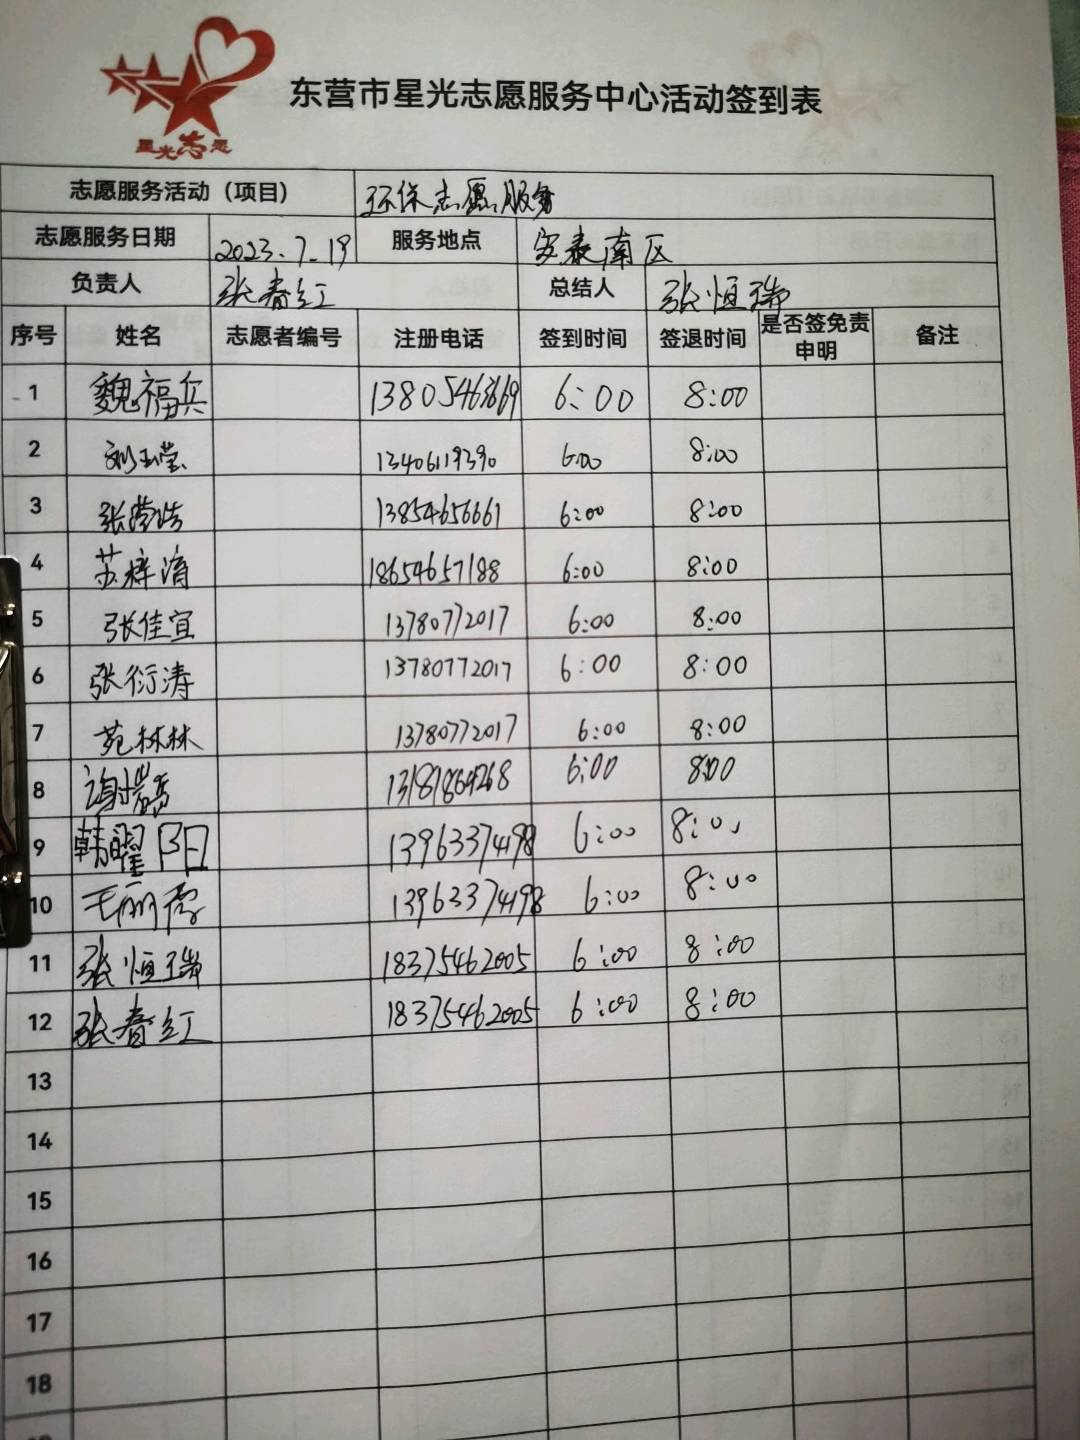 星光志愿
东营市星光志愿服务中心活动签到表
志愿服务活动（项目） 环保志愿服务
志愿服务日期 2023.7.19 服务地点 安泰南区
负责人 张春红 总结人 张恒瑞
序号 姓名 志愿者编号 注册电话 签到时间 签退时间 是否签免责申明 备注
1 魏福兵 6:00 8:00
2 刘玉莹 13406119390 6:00 8:00
3 13854656661 6:00 8:00
4 苏梓淯 18654657188 6:00 8:00
5 张佳宜 13780772017 6:00 8:00
6 张衍涛 13780772017 6:00 8:00
7 苑林林 13780772017 6:00 8:00
8 13181869268 6:00 8:00
9 韩曜阳 13963374198 6:00 8:00
10 王丽霞 13963374198 6:00 8:00
11 张恒瑞 18375462005 6:00 8:00
12 张春红 18375462005 6:00 8:00
13
14
15
16
17
18